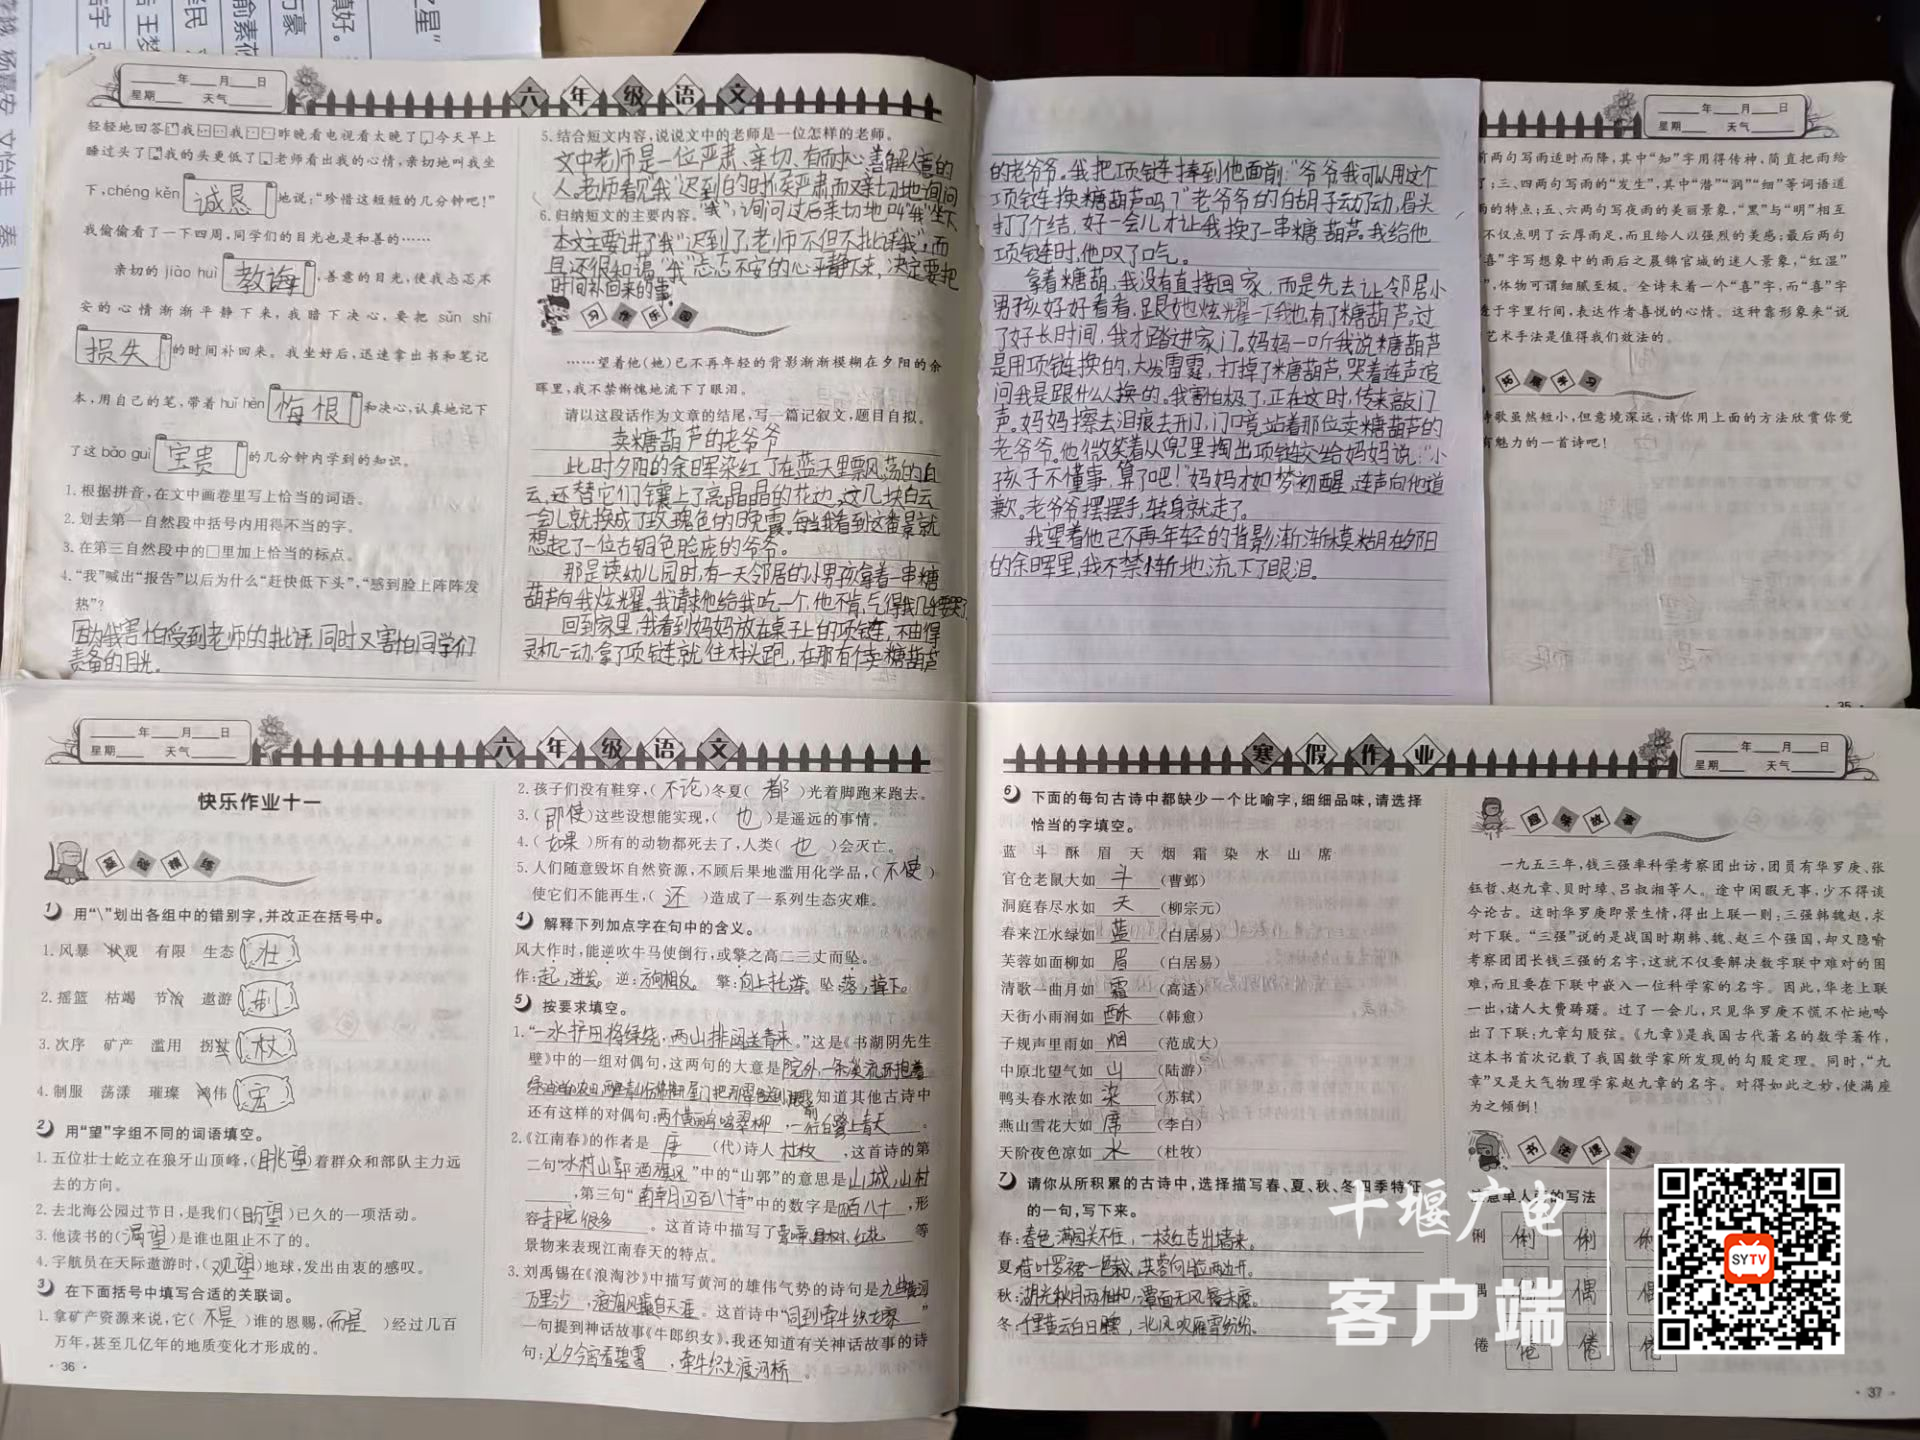 之星”
真好。
万豪
俞素
民
王梦
杨露安
文怡佳
秦
年 月 日
星期 天气
六年级语文
轻轻地回答 我 我 昨晚看电视看太晚了 今天早上
睡过头了 我的头更低了 老师看出我的心情，亲切地叫我坐
下，chéng kěn 诚恳 地说：“珍惜这短短的几分钟吧！”
我偷偷看了一下四周，同学们的目光也是和善的……
亲切的 jiào huì 教诲，善意的目光，使我忐忑不
安的心情渐渐平静下来，我暗下决心，要把 sǔn shī
损失 的时间补回来。我坐好后，迅速拿出书和笔记
本，用自己的笔，带着 huǐ hèn 悔恨 和决心，认真地记下
了这 bǎo guì 宝贵 的几分钟内学到的知识。
1. 根据拼音，在文中画卷里写上恰当的词语。
2. 划去第一自然段中括号内用得不当的字。
3. 在第三自然段中的□里加上恰当的标点。
4. “我”喊出“报告”以后为什么“赶快低下头”，“感到脸上阵阵发
热”？
因为我害怕受到老师的批评，同时又害怕同学们
责备的目光。
5. 结合短文内容，说说文中的老师是一位怎样的老师。
文中老师是一位严肃、亲切、有耐心、善解人意的
人。老师看见“我”迟到的时候严肃而又亲切地询问
“我”，询问过后亲切地叫“我”坐下
6. 归纳短文的主要内容。
本文主要讲了“我”迟到了，老师不但不批评“我”，而
且还很和蔼，“我”忐忑不安的心平静下来，决定要把
时间补回来的事。
习作乐园
……望着他(她)已不再年轻的背影渐渐模糊在夕阳的余
晖里，我不禁惭愧地流下了眼泪。
请以这段话作为文章的结尾，写一篇记叙文，题目自拟。
卖糖葫芦的老爷爷
此时夕阳的余晖染红了在蓝天里飘荡的白
云，还替它们镶上了亮晶晶的花边。这几块白云
一会儿就换成了玫瑰色的晚霞。每当我看到这番景就
想起了一位古铜色脸庞的爷爷。
那是读幼儿园时，有一天邻居的小男孩拿着一串糖
葫芦向我炫耀。我请求他给我吃一个，他不肯，气得我几乎要哭了
回到家里，我看到妈妈放在桌子上的项链，不由得
灵机一动，拿了项链就往村头跑，在那有位卖糖葫芦
的老爷爷。我把项链捧到他面前：“爷爷我可以用这个
项链换糖葫芦吗？”老爷爷的白胡子动了动，眉头
打了个结，好一会儿才让我换了一串糖葫芦。我给他
项链时，他叹了口气。
拿着糖葫，我没有直接回家，而是先去让邻居小
男孩好好看看，跟她炫耀一下我也有了糖葫芦。过
了好长时间，我才踏进家门。妈妈一听我说糖葫芦
是用项链换的，大发雷霆，打掉了糖葫芦，哭着连声追
问我是跟什么人换的。我害怕极了，正在这时，传来敲门
声。妈妈擦去泪痕去开门，门口竟站着那位卖糖葫芦的
老爷爷。他微笑着从兜里掏出项链交给妈妈说：“小
孩子不懂事，算了吧！”妈妈才如梦初醒，连声向他道
歉。老爷爷摆摆手，转身就走了。
我望着他已不再年轻的背影渐渐模糊在夕阳
的余晖里，我不禁惭地流下了眼泪。
年 月 日
星期 天气
前两句写雨适时而降，其中“知”字用得传神，简直把雨给
了；三、四两句写雨的“发生”，其中“潜”“润”“细”等词语道
雨的特点；五、六两句写夜雨的美丽景象，“黑”与“明”相互
不仅点明了云厚雨足，而且给人以强烈的美感；最后两句
喜”字写想象中的雨后之晨锦官城的迷人景象，“红湿”
”，体物可谓细腻至极。全诗未着一个“喜”字，而“喜”字
于字里行间，表达作者喜悦的心情。这种靠形象来“说
艺术手法是值得我们效法的。
拓展学习
诗歌虽然短小，但意境深远，请你用上面的方法欣赏你觉
有魅力的一首诗吧！
35
年 月 日
星期 天气
六年级语文
快乐作业十一
基础精练
1 用“\”划出各组中的错别字，并改正在括号中。
1. 风暴 状观 有限 生态 壮
2. 摇篮 枯竭 节治 遨游 制
3. 次序 矿产 滥用 拐 杖
4. 制服 荡漾 璀璨 鸿伟 宏
2 用“望”字组不同的词语填空。
1. 五位壮士屹立在狼牙山顶峰，(眺望)着群众和部队主力远
去的方向。
2. 去北海公园过节日，是我们(盼望)已久的一项活动。
3. 他读书的(渴望)是谁也阻止不了的。
4. 宇航员在天际遨游时，(观望)地球，发出由衷的感叹。
3 在下面括号中填写合适的关联词。
1. 拿矿产资源来说，它(不是)谁的恩赐，(而是)经过几百
万年，甚至几亿年的地质变化才形成的。
· 36 ·
2. 孩子们没有鞋穿，(不论)冬夏(都)光着脚跑来跑去。
3. (即使)这些设想能实现，(也)是遥远的事情。
4. (如果)所有的动物都死去了，人类(也)会灭亡。
5. 人们随意毁坏自然资源，不顾后果地滥用化学品，(不使)
使它们不能再生，(还)造成了一系列生态灾难。
4 解释下列加点字在句中的含义。
风大作时，能逆吹牛马使倒行，或擎之高二三丈而坠。
作：起，进发。逆：方向相反。擎：向上托举。坠：落，掉下。
5 按要求填空。
1. “一水护田将绿绕，两山排闼送青来。”这是《书湖阴先生
壁》中的一组对偶句，这两句的大意是院外，一条溪流环抱着
绿油油的农田，两座青山仿佛推开门把翠色送到眼前。我知道其他古诗中
还有这样的对偶句：两个黄鹂鸣翠柳，一行白鹭上青天。
2. 《江南春》的作者是 唐 (代)诗人 杜牧，这首诗的第
二句“水村山郭酒旗风”中的“山郭”的意思是山城，山村
，第三句“南朝四百八十寺”中的数字是四百八十，形
容寺院很多。这首诗中描写了莺啼、绿树、红花 等
景物来表现江南春天的特点。
3. 刘禹锡在《浪淘沙》中描写黄河的雄伟气势的诗句是九曲黄河
万里沙，浪淘风簸自天涯。这首诗中“同到牵牛织女家”
一句提到神话故事《牛郎织女》，我还知道有关神话故事的诗
句：七夕今宵看碧霄，牵牛织女渡河桥。
寒假作业
年 月 日
星期 天气
6 下面的每句古诗中都缺少一个比喻字，细细品味，请选择
恰当的字填空。
蓝 斗 酥 眉 天 烟 霜 染 水 山 席
官仓老鼠大如 斗 (曹邺)
洞庭春尽水如 天 (柳宗元)
春来江水绿如 蓝 (白居易)
芙蓉如面柳如 眉 (白居易)
清歌一曲月如 霜 (高适)
天街小雨润如 酥 (韩愈)
子规声里雨如 烟 (范成大)
中原北望气如 山 (陆游)
鸭头春水浓如 染 (苏轼)
燕山雪花大如 席 (李白)
天阶夜色凉如 水 (杜牧)
7 请你从所积累的古诗中，选择描写春、夏、秋、冬四季特征
的一句，写下来。
春：春色满园关不住，一枝红杏出墙来。
夏：荷叶罗裙一色裁，芙蓉向脸两边开。
秋：湖光秋月两相和，潭面无风镜未磨。
冬：千里黄云白日曛，北风吹雁雪纷纷。
趣味故事
一九五三年，钱三强率科学考察团出访，团员有华罗庚、张
钰哲、赵九章、贝时璋、吕叔湘等人。途中闲暇无事，少不得谈
今论古。这时华罗庚即景生情，得出上联一则：三强韩魏赵，求
对下联。“三强”说的是战国时期韩、魏、赵三个强国，却又隐喻
考察团团长钱三强的名字，这就不仅要解决数字联中难对的困
难，而且要在下联中嵌入一位科学家的名字。因此，华老上联
一出，诸人大费踌躇。过了一会儿，只见华罗庚不慌不忙地吟
出了下联：九章勾股弦。《九章》是我国古代著名的数学著作，
这本书首次记载了我国数学家所发现的勾股定理。同时，“九
章”又是大气物理学家赵九章的名字。对得如此之妙，使满座
为之倾倒！
书法课堂
注意单人旁的写法
俐 俐 俐 俐
偶 偶 偶 偶
倦 倦 倦 倦
· 37 ·
十堰广电
客户端
SYTV